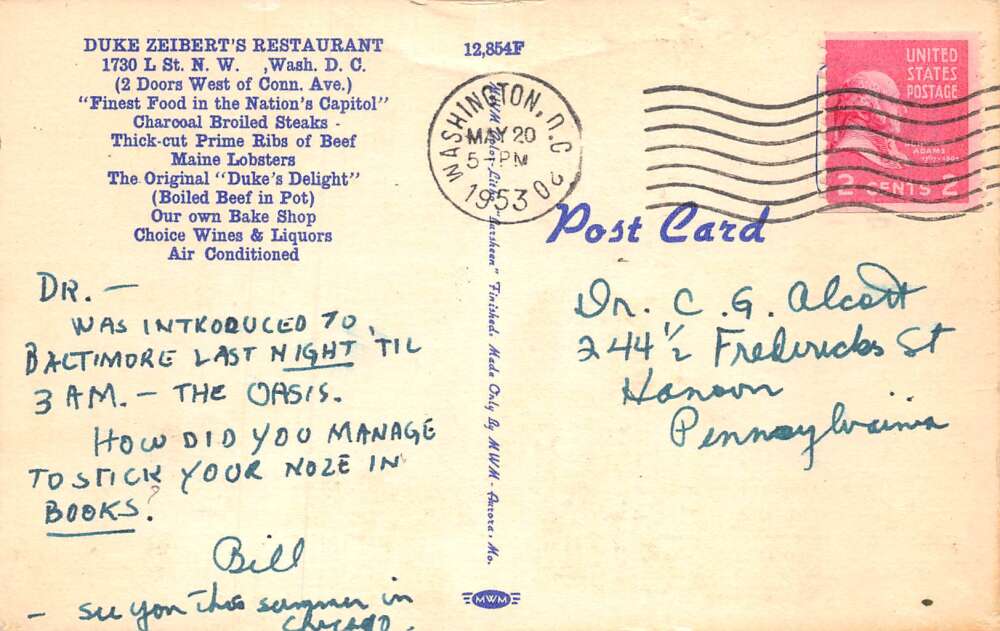 DUKE ZEIBERT'S RESTAURANT
1730 L St. N. W. ,Wash. D. C.
(2 Doors West of Conn. Ave.)
"Finest Food in the Nation's Capitol"
Charcoal Broiled Steaks -
Thick-cut Prime Ribs of Beef
Maine Lobsters
The Original "Duke's Delight"
(Boiled Beef in Pot)
Our own Bake Shop
Choice Wines & Liquors
Air Conditioned
12,854F
WASHINGTON, D.C.
MAY 20
5-PM
1953
UNITED
STATES
POSTAGE
ADAMS
2 CENTS 2
Post Card
"Marsheen" Finished. Made Only By MWM - Aurora, Mo.
DR. —
WAS INTRODUCED TO
BALTIMORE LAST NIGHT TIL
3 AM. — THE OASIS.
HOW DID YOU MANAGE
TO STICK YOUR NOZE IN
BOOKS?
Bill
– See you this summer in
Chicago.
Dr. C. G. Alcott
244 1/2 Fredericks St
Hanover
Pennsylvainia
MWM